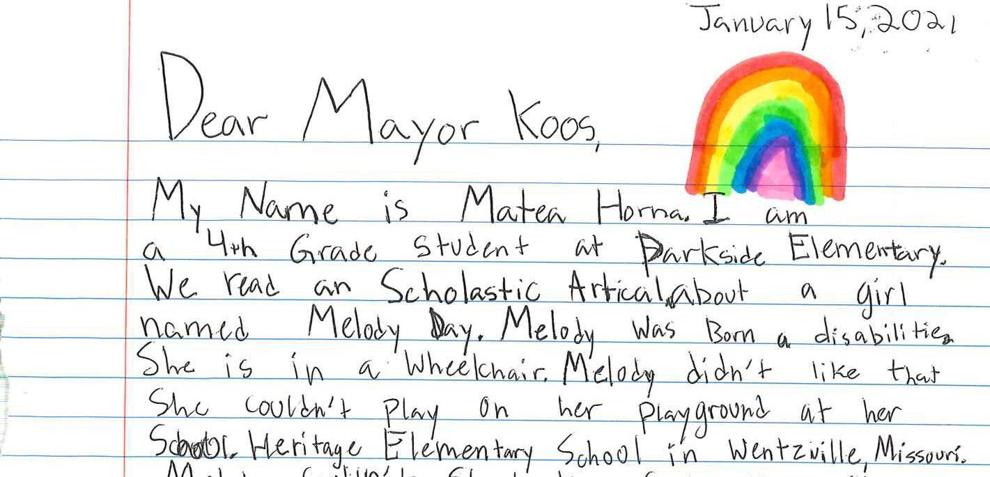 January 15, 2021
Dear Mayor Koos,
My Name is Matea Horna. I am
a 4th Grade student at Parkside Elementary.
We read an Scholastic Artical about a girl
named Melody Day. Melody was Born a disabilities
She is in a Wheelchair. Melody didn't like that
She couldn't Play on her Playground at her
School. Heritage Elementary School in Wentzville, Missouri.